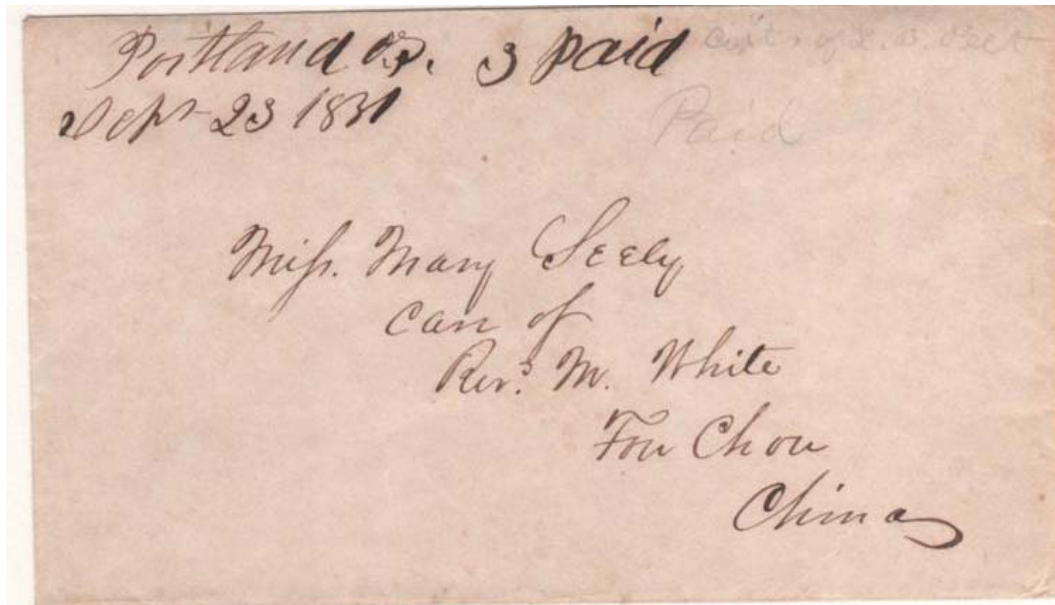 Portland O.T. 3 paid
Sept 23 1851
Care of L. B. Peet
Paid
Miss. Mary Seely
Care of
Revd. M. White
Fou Chou
China